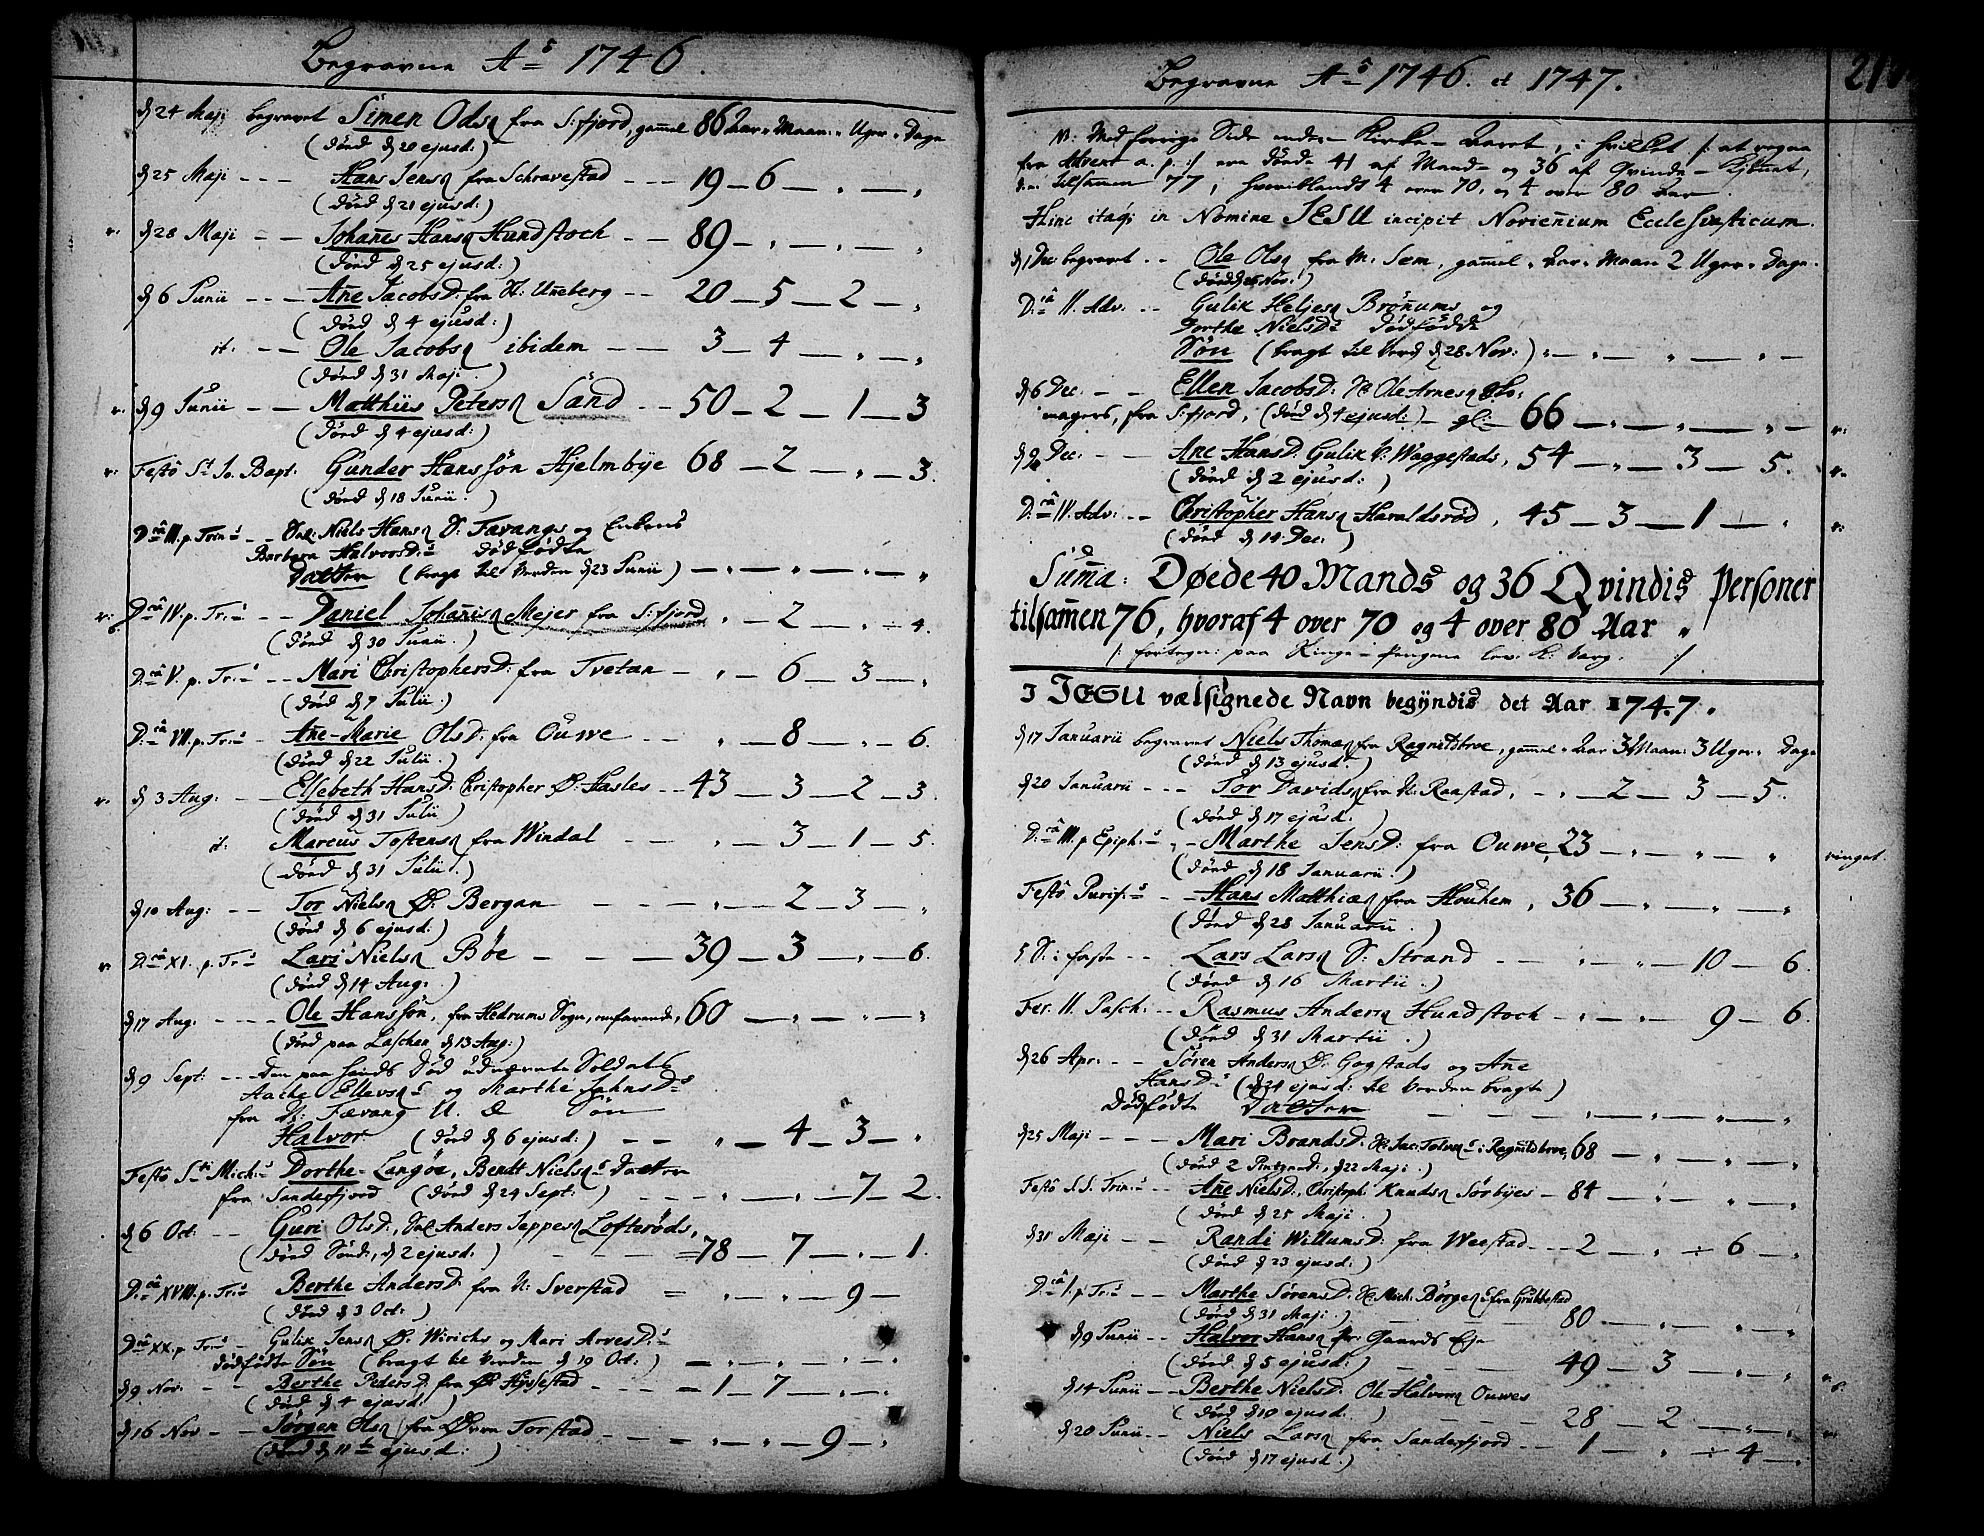 Begravne Aº 1746.
d 24 Maji begravet Simen Ols: fra S:fjord, gammel 86 Aar " Maan: " Uger " Dage
(død d 20 ejusd:)
d 25 Maji - - - Hans Jens: fra Schravestad - - - 19 - 6 - " - "
(død d 21 ejusd:)
v. d 28 Maji - - Johanes Hans: Hundstoch - - 89 - " - " - "
(død d 25 ejusd:)
d 6 Junii - - - Ane JacobsD: fra N: Uneberg - - 20 - 5 - 2 - "
(død d 4 ejusd:)
it: - - Ole Jacobs: ibidem - - - 3 - 4 - " - "
(død d 31 Maji)
v. d 9 Junii - - Matthiis Peters: Sand - - 50 - 2 - 1 - 3
(død d 4 ejusd:)
v. Festo St. Jo. Bapt. Gunder Hanssøn Hjelmbye 68 - 2 - " - 3.
(død d 18 Junii)
D:câ III. p. Trin: - - Niels Hans: N: Favangs og
Barbara HalvorsD: dødfødte
Datter (bragt til Verden d 23 Junii) - " - " - " - "
v: D:câ IV. p. Tr: - - Daniel Johanis: Mejer fra S:fjord " - 2 - " - 4.
(død d 30 Junii.)
D:câ V. p. Tr: - - Mari ChristophersD: fra Tvetan - " - 6 - 3 - "
(død d 7 Julii.)
D:câ VII. p. Tr: - Ane-Marie OlsD: fra Ouwe - - " - 8 - " - 6.
(død d 22 Julii.)
v. d 3 Aug: - - Elsebeth HansD: Christopher Ø: Hasles - - 43 - 3 - 2 - 3.
(død d 31 Julii)
it: Marcus Tostens: fra Windal - - " - 3 - 1 - 5.
(død d 31 Julii.)
d 10 Aug: - - Tor Niels: Ø: Bergan - - - " - 2 - 3 - "
(død d 6 ejusd:)
v. D:câ XI. p. Tr: Lars Niels: Bøe - - - 39 - 3 - " - 6.
(død d 14 Aug:)
d 17 Aug: - - - Ole Hanssøn, fra Hedrums Sogn, omfarende, 60 - " - " - "
(død paa Laschen d 13 Aug:)
d 9 Sept: - - Den paa hands Død udnævnte Soldat
Aache Ellevs: og Marthe JahnsD:
fra N: Fævang U. Æ Søn
Halvor (død d 6 ejusd:) - - " - 4 - 3 - "
Festo Sti Mich: Dorthe-Langøe, Bendt Niels: Datter
fra Sandefjord (død d 24 Sept:) - - - " - " - 7 - 2.
d 6 Oct: - - Guri OlsD:, Anders Jeppes: Lofterøds,
(død Sønd:, d 2 ejusd:) - - = 78 - 7 - " - 1.
D:câ XVIII. p. Tr: Berthe AndersD: fra N: Sverstad = " - " - 9 -
(død d 3 Oct:)
D:câ XX. p. Tr: Gulik Jens: Ø: Wirichs og Mari ArvesD:
dødfødte Søn (bragt til Verden d 19 Oct:) - " - " - " - "
d 9 Nov: - - Berthe PedersD: fra Ø: Hjusestad - - - 1 - 7 - " - "
(død d 4 ejusd:)
d 16 Nov - - Jørgen Ols: fra Øvre Torstad - - - " - " - 9 - "
(død d 11te ejusd:)
Begravne Aº 1746. et 1747. 21
N: Med forrige Side endes Kirke-Aaret, i hvilket /: at regne
fra Advent a. p. :/ ere døde 41 af Mand- og 36 af Qvinde-Kjønnet,
tilsamen 77, hvoriblandt 4 over 70, og 4 over 80 Aar.
Hinc itaq in Nomine JESU incipit Novenium Ecclesiasticum.
d 1 Dec begravet - - Ole Ols: fra M: Sæm, gammel " Aar " Maan 2 Uger " Dage.
(død d 26 Nov:)
D:câ II. Adv. - - Gulik Heljes: Brønums og
Dorthe NielsD: Dødfødde
Søn (bragt til Verd d 28 Nov:) " - " - " - " -
d 6 Dec. - - Ellen JacobsD: Ole Arnes: Sko-
magers, fra S:fjord, (død d 4 ejusd:) - gl: - 66 - " - " - " - v:
d 9 Dec: - - Ane HansD: Gulik V: Waggestads, 54 - " - 3 - 5. v.
(død d 2 ejusd:)
D:câ IV. Adv: - - Christopher Hans: Haraldsrød, 45 - 3 - 1 - " v:
(død d 14 Dec:)
Suma: Døede 40 Mands og 36 Qvindis Personer
tilsamen 76, hvoraf 4 over 70 og 4 over 80 Aar "
J JESU vælsignede Navn begyndis det Aar 1747.
d 17 Januarii begravet Niels Thomas: fra Ragnildsroe, gammel " Aar 3 Maan: 3 Uger " Dage
(død d 13 ejusd:)
d 20 Januarii - - - Tor Davids: fra N: Raastad, - " - 2 - 3 - 5.
(død d 17 ejusd:)
D:câ III. p Epiph: " - Marthe JensD: fra Ouwe, 23 - " - " - " ringet.
(død d 18 Januarii.)
Festo Purif: - - Hans Matthias: fra Houhem, 36 - " - " - "
(død d 28 Januarii.)
5 S: i faste - - Lars Lars: N: Strand - - " - " - 10 - 6.
(død d 16 Martii.)
Fer. II. Pasch: - - Rasmus Anders: Hundstoch - " - " - 9 - 6.
(død d 31 Martii.)
d 26 Apr: - - Søren Anders: Ø: Gogstads og Ane
HansD: (d 24 ejusd: til Verden bragte)
Dødfødte Datter - - - " - " - " - "
d 25 Maji - - - Mari BrandsD: Jac: Tolvs: i Ragnildsroe, 68 - " - " - "
(død 2 Pintzend:, d 22 Maji.)
Festo S.S. Trin: - - Ane NielsD:, Christoph: Knuds: Sørbyes - 84 - " - " - "
(død d 25 Maji.)
d 31 Maji - - Randi WillumsD: fra Weestad - - - 2 - " ÷ 6 - "
(død d 23 ejusd:)
D:câ I. p Tr: - - Marthe SørensD: Mich: Børges: fra Grubbestad
(død d 31 Maji) 80 - " - " - "
d 9 Junii - - Halvor Hans: fra Gaards Eje
(død d 5 ejusd:) - - - 49 - 3 - " - "
d 14 Junii - - Berthe NielsD: Ole Halvors: Ouwes
(død d 10 ejusd.) - - - 28 - 2 - " - "
d 20 Junii - - Niels Lars: fra Sandefjord - - 1 - " ÷ 4 - "
(død d 17 ejusd.)